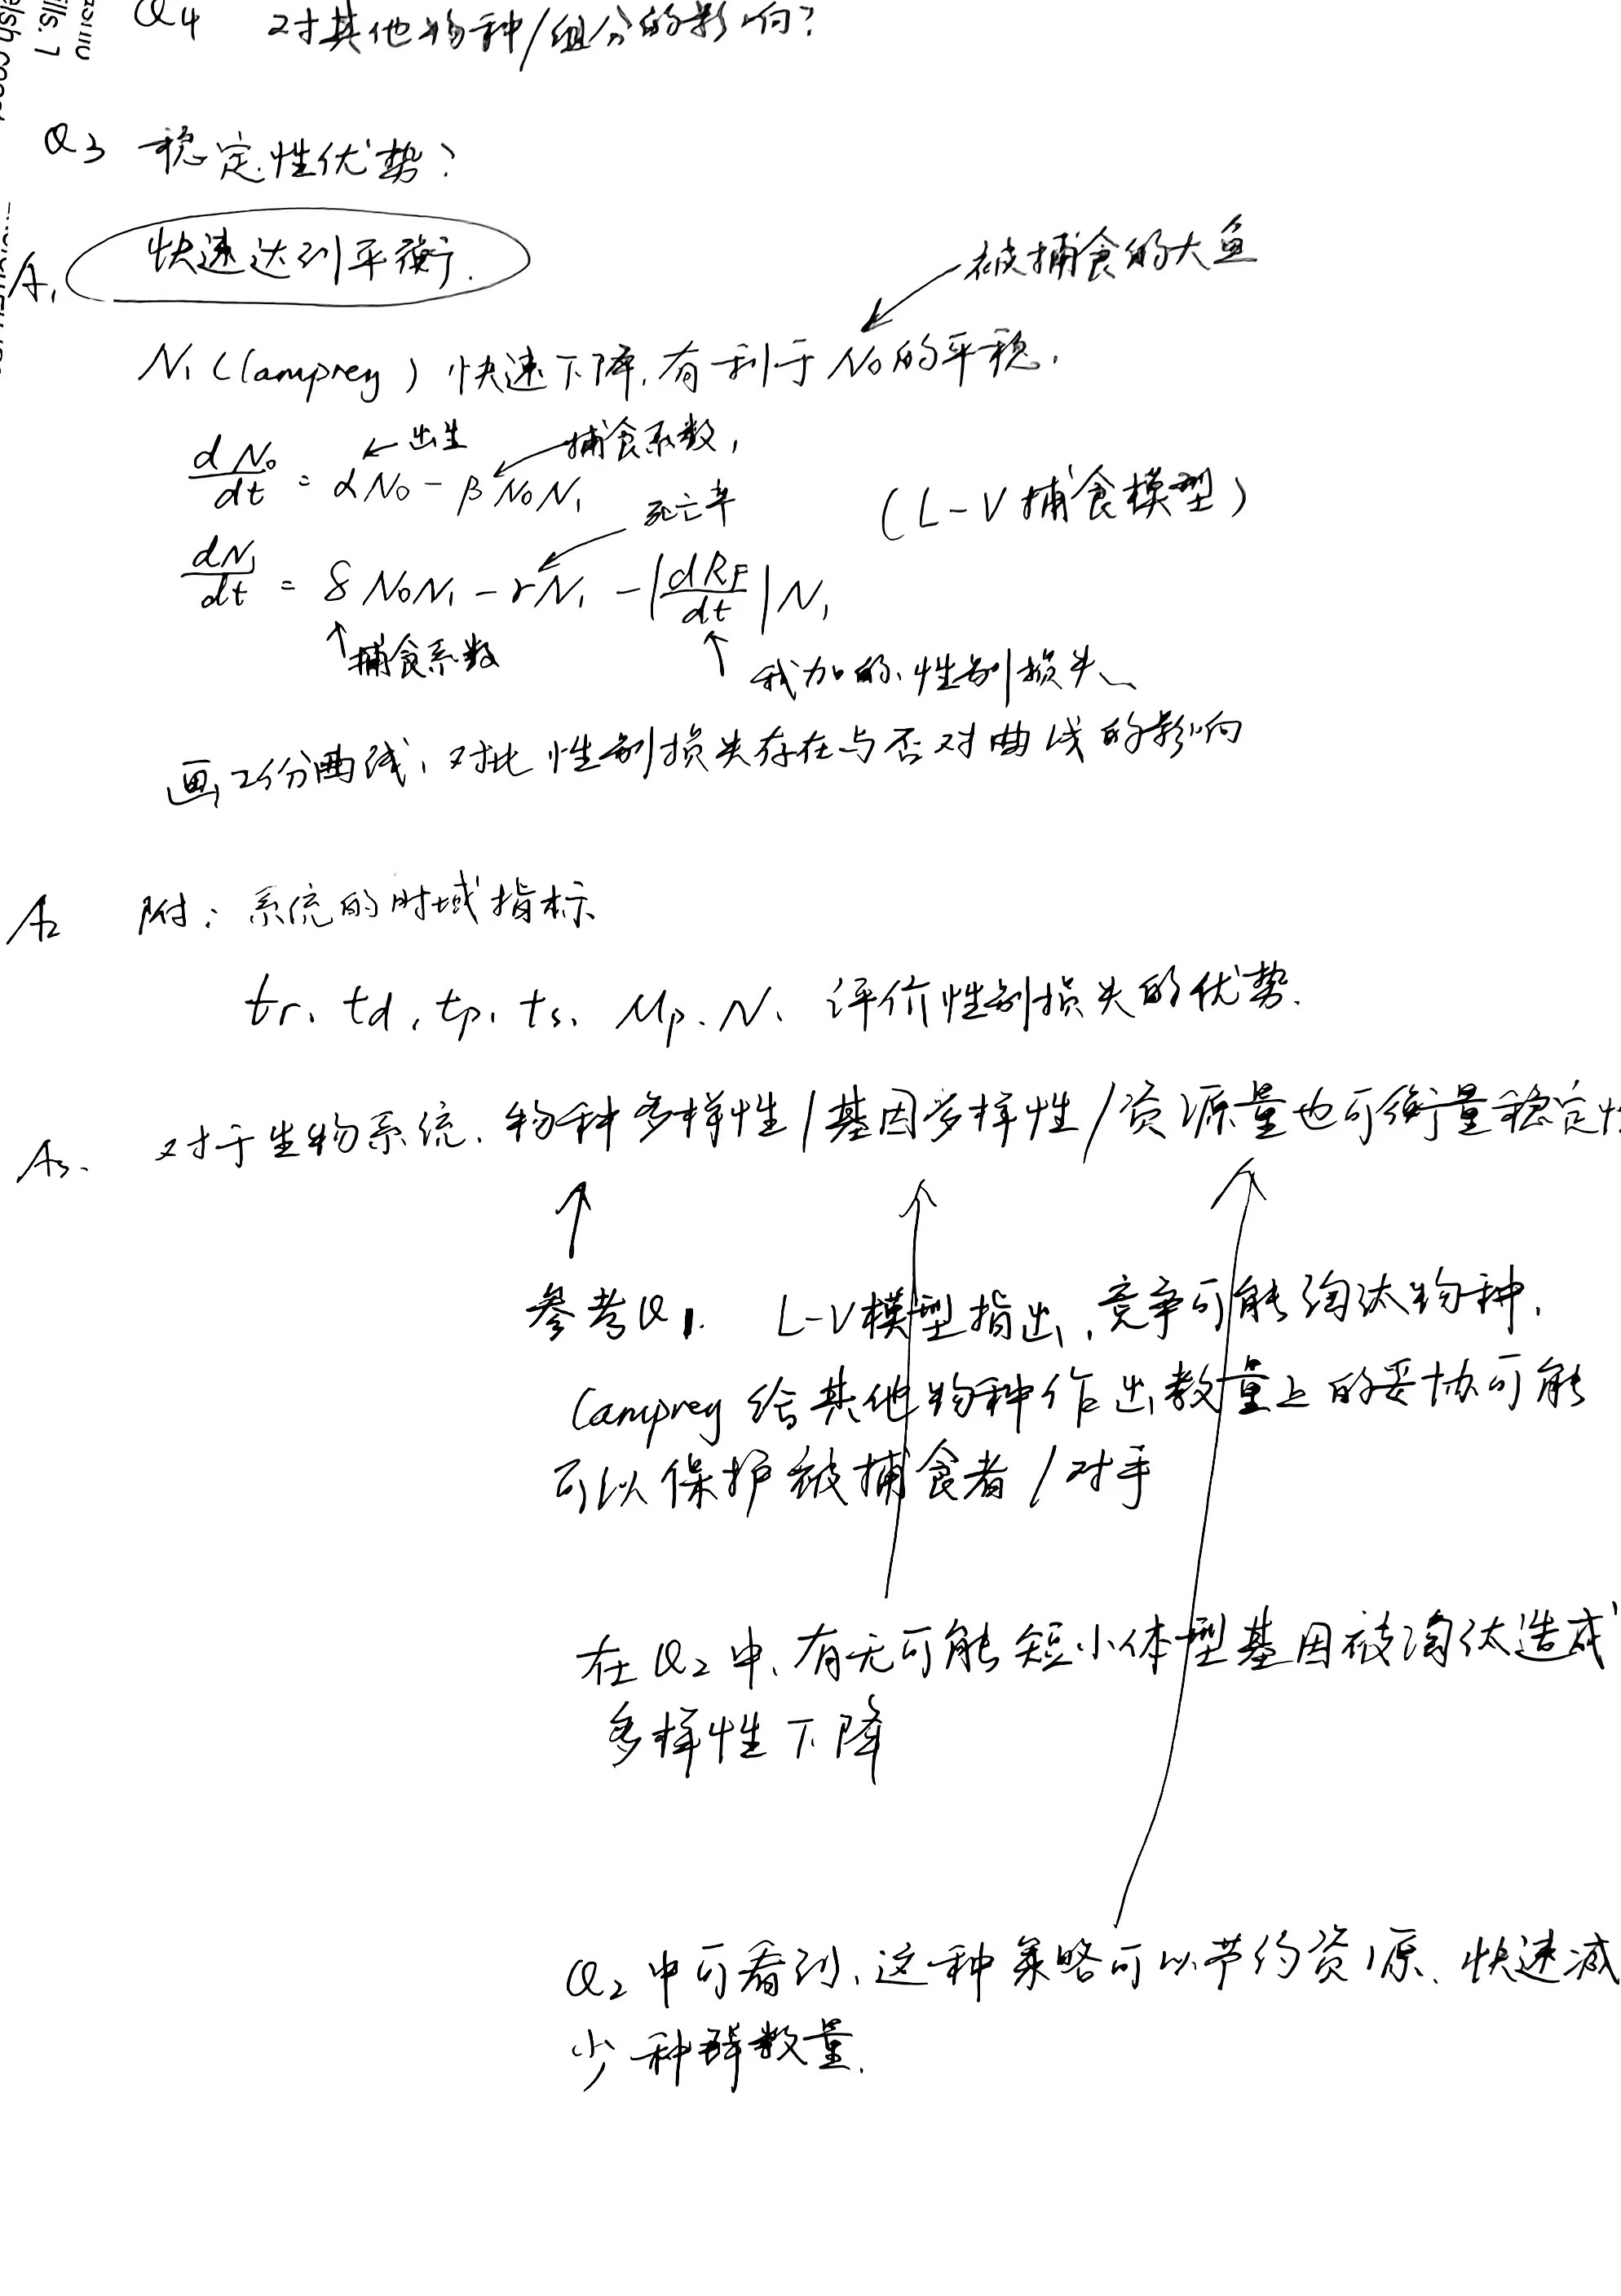 Q4 对其他物种/组分的影响?
Q3 稳定性优势?
A1 快速达到平衡.
被捕食的大鱼
N1 (lamprey) 快速下降,有利于N0的平稳.
出生 捕食系数,
dN0/dt = αN0 - βN0N1
死亡率 (L-V捕食模型)
dN1/dt = δN0N1 - rN1 - |dRF/dt|N1
捕食系数
我加的、性别损失
画2份曲线,对比性别损失存在与否对曲线的影响
A2 附: 系统的时域指标
tr、td、tp、ts、Mp、N、评价性别损失的优势.
A3. 对于生物系统、物种多样性/基因多样性/资源量也可衡量稳定性
参考Q1. L-V模型指出,竞争可能淘汰物种,
lamprey给其他物种作出数量上的妥协可能
可以保护被捕食者/对手
在Q2中、有无可能短小体型基因被淘汰造成
多样性下降
Q2中可看到、这种策略可以节约资源、快速减
少种群数量.